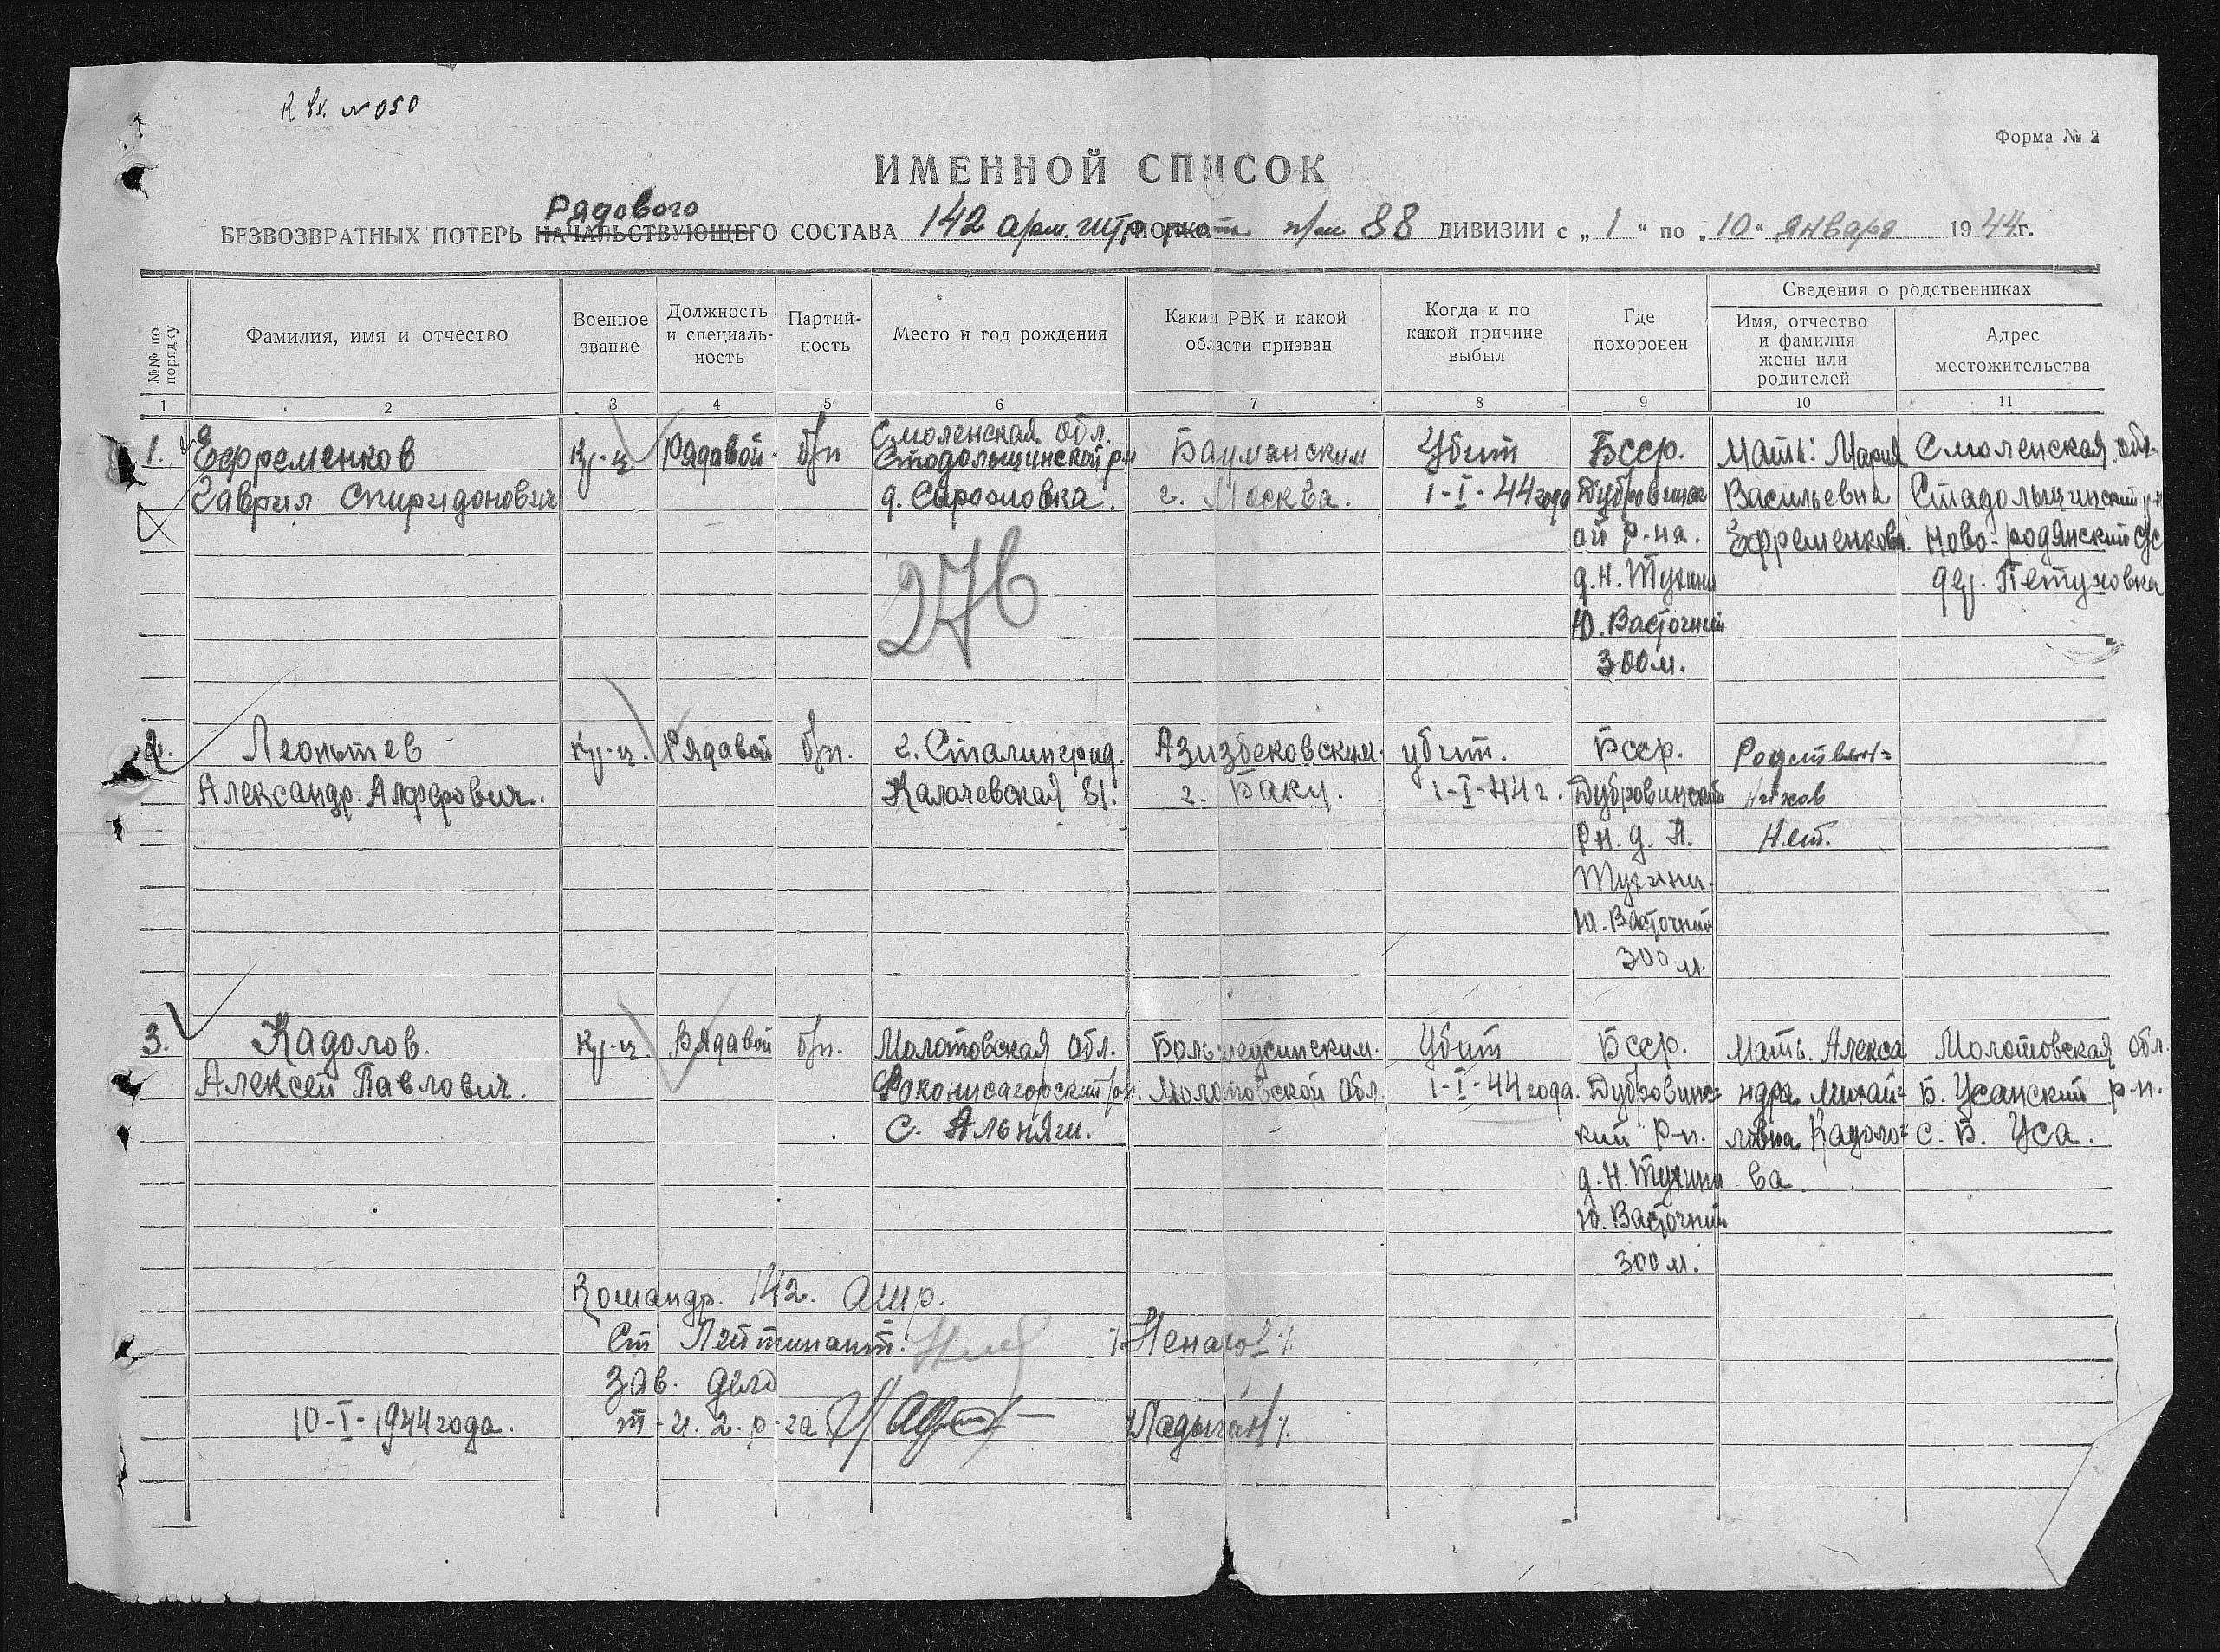 К вх. № 050
Форма № 2
ИМЕННОЙ СПИСОК
Рядового
БЕЗВОЗВРАТНЫХ ПОТЕРЬ НАЧАЛЬСТВУЮЩЕГО СОСТАВА 142 арм. штр. рота при 88 ДИВИЗИИ с „ 1 “ по „ 10 “ января 1944 г.
№№ по порядку
Фамилия, имя и отчество
Военное звание
Должность и специаль-ность
Партий-ность
Место и год рождения
Каким РВК и какой области призван
Когда и по какой причине выбыл
Где похоронен
Сведения о родственниках
Имя, отчество и фамилия жены или родителей
Адрес местожительства
1 2 3 4 5 6 7 8 9 10 11
1. Ефременков
Гаврил Спиридонович
кр-ц
Рядавой
б/п
Смоленская обл.
Стодолищинской р-н
д.
Бауманским
г. Москва.
Убит
1-I-44 года
Бсср.
Дубровинск
ой р-на.
д. Н. Тухини
Ю. Васточний
300 м.
Мать: Мария
Васильевна
Ефременкова.
Смоленская обл.
Стадолищинский р-н
Ново-родянский с/с
дер. Петуховка
276
2. Леонтьев
Александр
кр-ц.
Рядавой
б/п.
г. Сталинград.
Калачевская 81.
Азизбековским
г. Баку.
убит.
1-I-44 г.
Бсср.
Дубровинский
р-н. д.
Тухини.
Ю. Васточний
300 м.
Родствен=
ников
Нет.
3. Кадолов.
Алексей Павлович.
кр-ц.
Рядавой
б/п.
Молотовская обл.
с. Альняш.
Большеусинским.
Молотовской обл.
Убит
1-I-44 года.
Бсср.
Дубровинс=
кий р-н.
д. Н. Тухини
Ю. Васточний
300 м.
Мать. Алекса
ндра Михай=
ловна Кадоло=
ва.
Молотовская обл.
Б. Усанский р-н.
с. Б. Уса.
Командр. 142. ашр.
Ст Лейтинант.
Зав. дело
10-I-1944 года.
т-и. 2. р-га
/Ладыгин/.